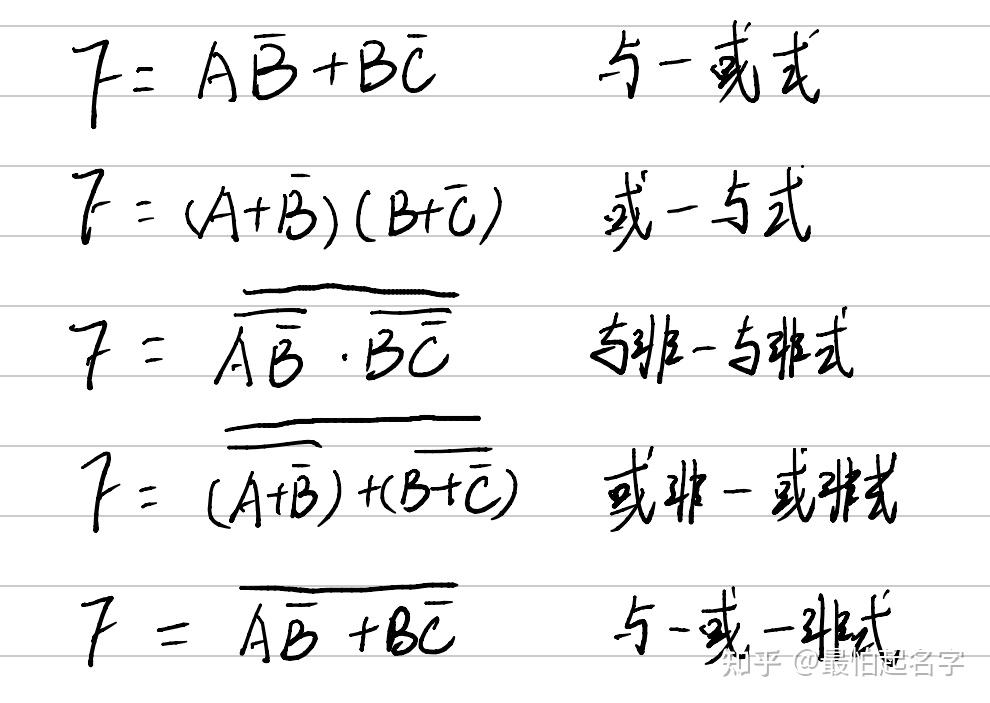 F = AB̅ + BC̅ 与-或式
F = (A+B̅)(B+C̅) 或-与式
F = \overline{\overline{AB̅} · \overline{BC̅}} 与非-与非式
F = \overline{\overline{(A+B̅)} + \overline{(B+C̅)}} 或非-或非式
F = \overline{AB̅ + BC̅} 与-或-非式
知乎 @最怕起名字